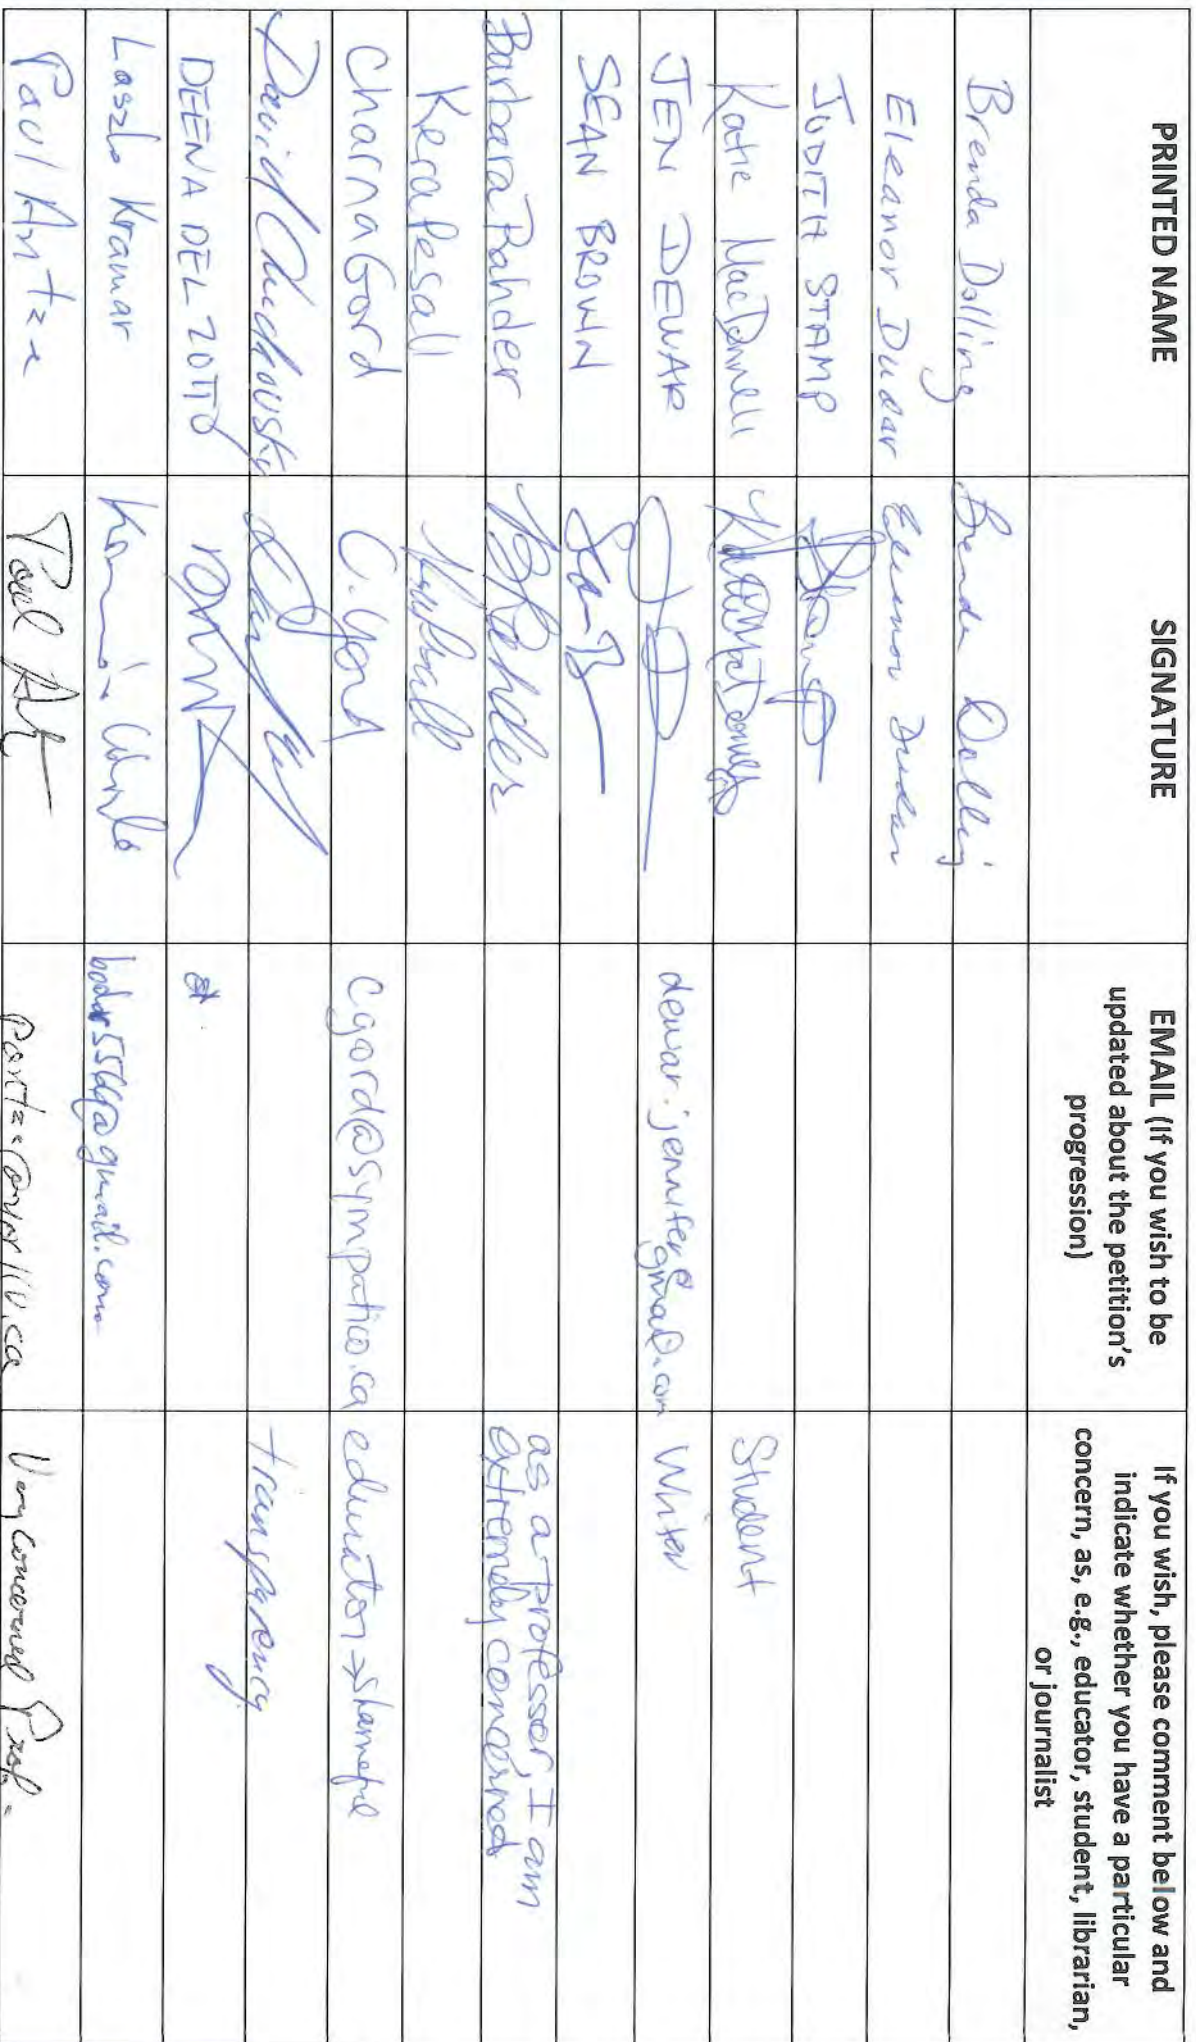 PRINTED NAME
SIGNATURE
EMAIL (If you wish to be
updated about the petition's
progression)
If you wish, please comment below and
indicate whether you have a particular
concern, as, e.g., educator, student, librarian,
or journalist
Brenda Dolling
Brenda Dolling
Eleanor Dudar
Eleanor Dudar
JUDITH STAMP
Katie MacDonnell
Student
JEN DEWAR
dewar.jennifer@
gmail.com
Writer
SEAN BROWN
Sean B
Barbara Rahder
BRahder
as a professor, I am
extremely concerned
Kera Pesall
Charna Gord
C. Gord
cgord@sympatico.ca
educator → shameful
David
transparency
DEENA DEL ZOTTO
Laszlo Kramar
@gmail.com
Paul Antze
Paul A
Very Concerned Prof.